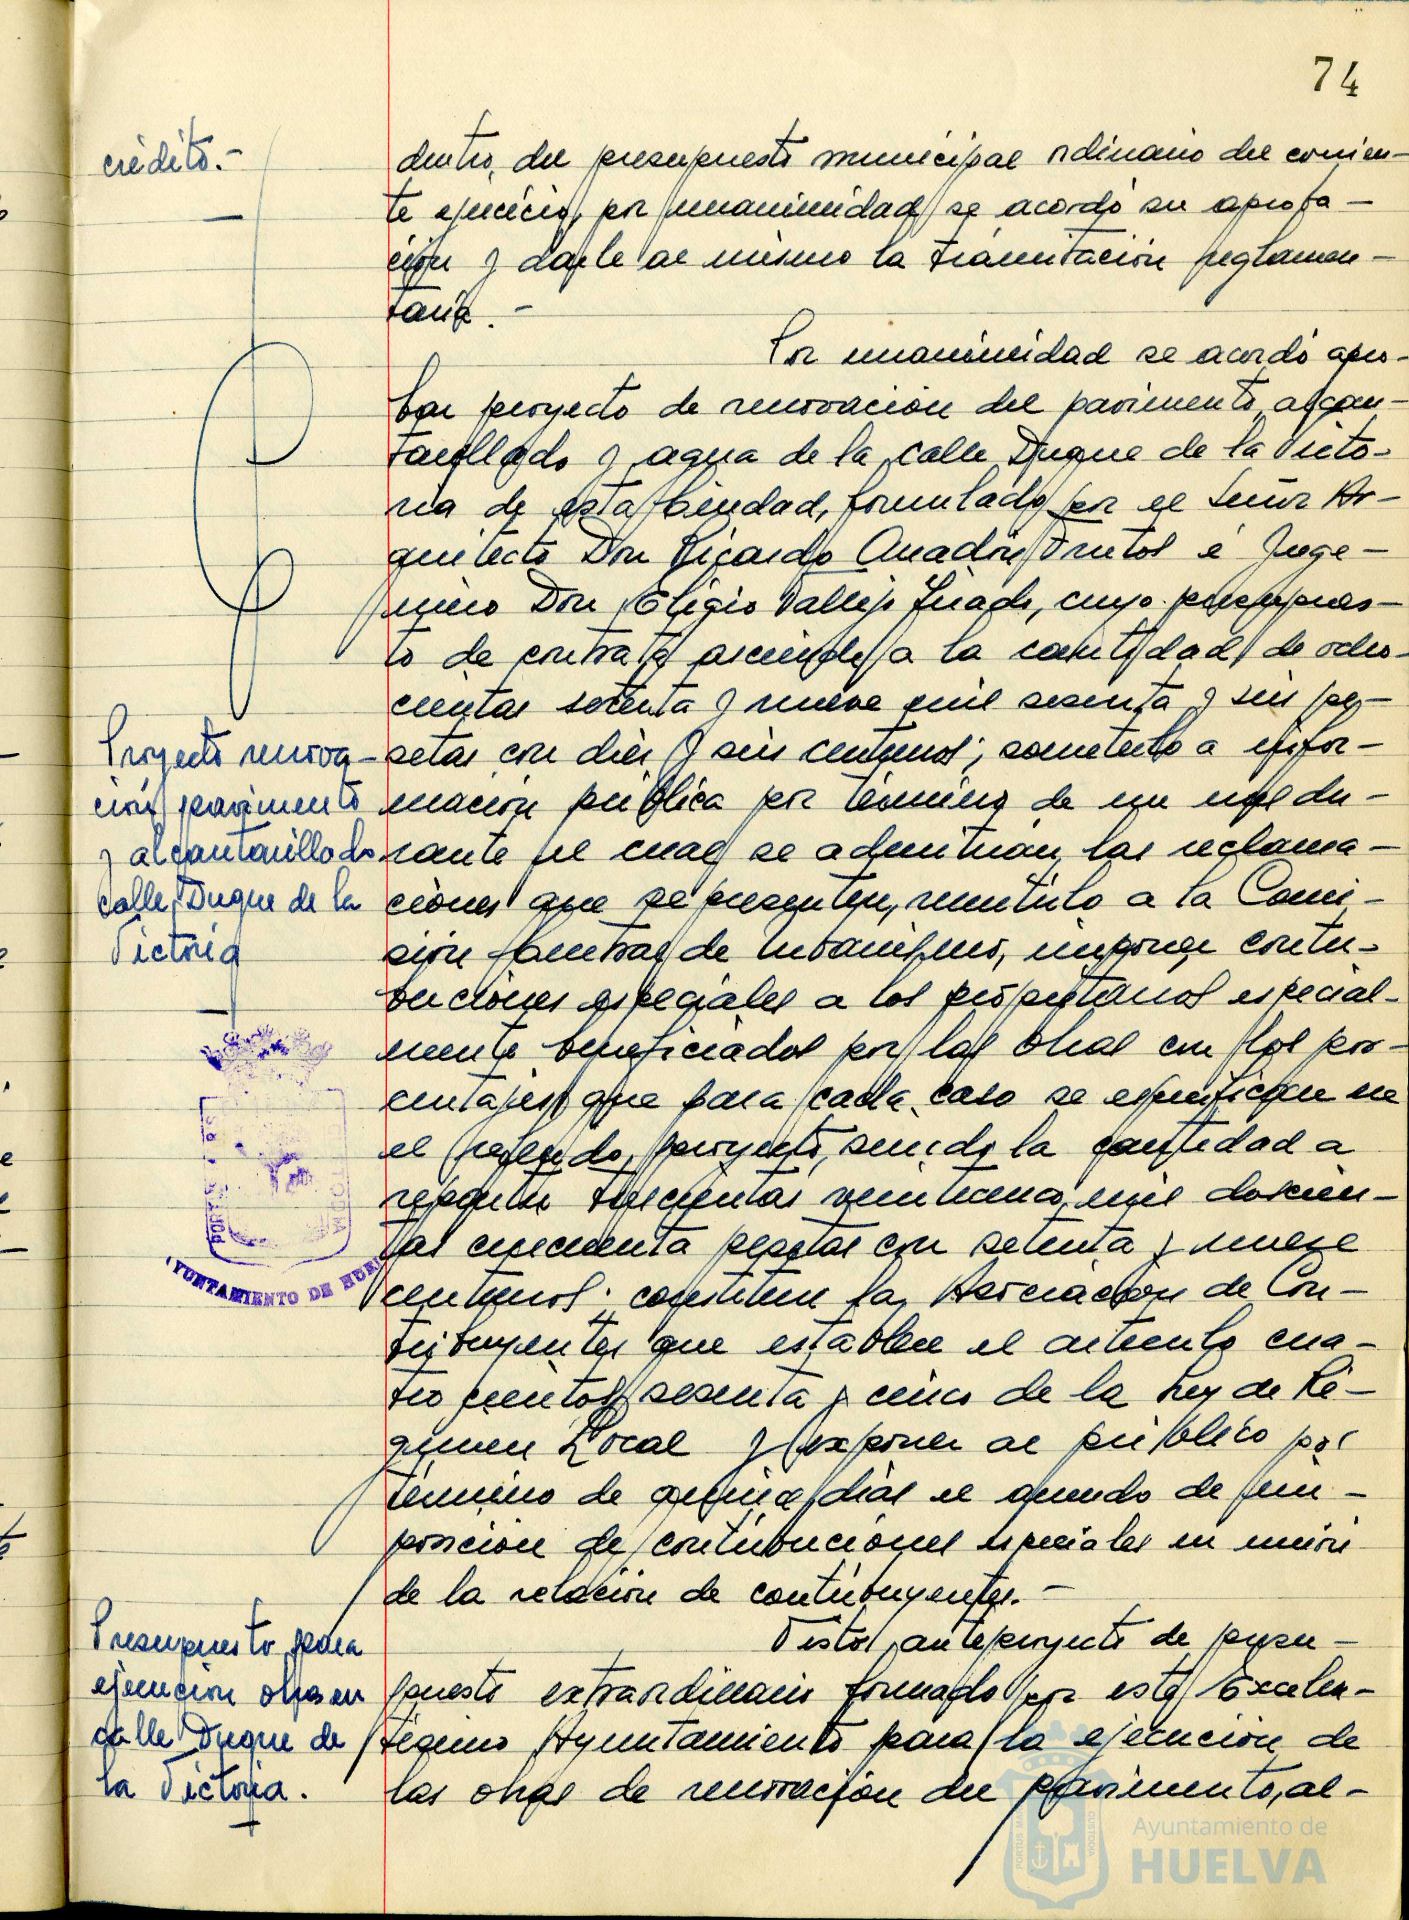 74
crédito.-
dentro, del presupuesto municipal ordinario del corrien-
te ejercicio, por unanimidad se acordó su aproba-
ción y darle al mismo la tramitación reglamen-
taria.-
Por unanimidad se acordó apro-
bar proyecto de renovación del pavimento, alcan-
tarillado y agua de la calle Duque de la Victo-
ria de esta Ciudad, formulado por el Señor Ar-
quitecto Don Ricardo Anadón Frutos é Inge-
niero Don Eligio Vallejo Tirado, cuyo presupues-
to de contrata asciende a la cantidad de ocho-
cientas setenta y nueve mil sesenta y seis pe-
Proyecto renova-
ción pavimento
y alcantarillado
calle Duque de la
Victoria
setas con diez y seis centimos; someterlo a infor-
mación pública por término de un mes du-
rante el cual se admitirán las reclama-
ciones que se presenten, remitirlo a la Comi-
sión Central de Urbanismo, imponer contri-
buciones especiales a los propietarios especial-
mente beneficiados por las obras con los por-
centajes que para cada caso se especifican en
el referido proyecto, siendo la cantidad a
repartir trescientas veinticinco mil doscien-
tas cincuenta pesetas con setenta y nueve
AYUNTAMIENTO DE HUELVA
centimos; constituir la Asociación de Con-
tribuyentes que establece el artículo cua-
trocientos sesenta y cinco de la Ley de Ré-
gimen Local y exponer al público por
término de quince días el acuerdo de im-
posición de contribuciones especiales en unión
de la relación de contribuyentes.-
Presupuesto para
ejecución obras en
calle Duque de
la Victoria.
Visto anteproyecto de presu-
puesto extraordinario formado por este Excelen-
tísimo Ayuntamiento para la ejecución de
las obras de renovación del pavimento, al-
Ayuntamiento de
HUELVA